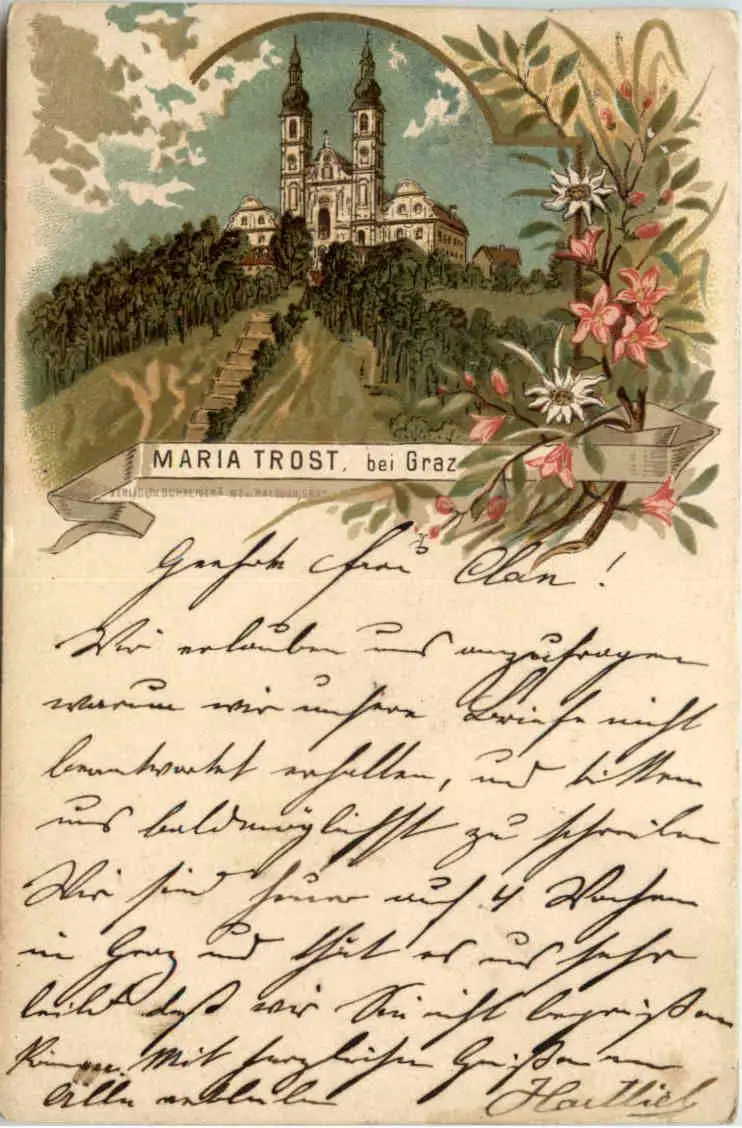 MARIA TROST, bei Graz
Geehrte Frau Clar!
Wir erlauben uns anzufragen
warum wir unsere Briefe nicht
beantwortet erhalten, und bitten
uns baldmöglichst zu schreiben
Wir sind heuer auf 4 Wochen
in Graz und thut es uns sehr
leid daß wir Sie nicht begrüßen
können. Mit herzlichen Grüßen an
Alle verbleibe Hartlieb